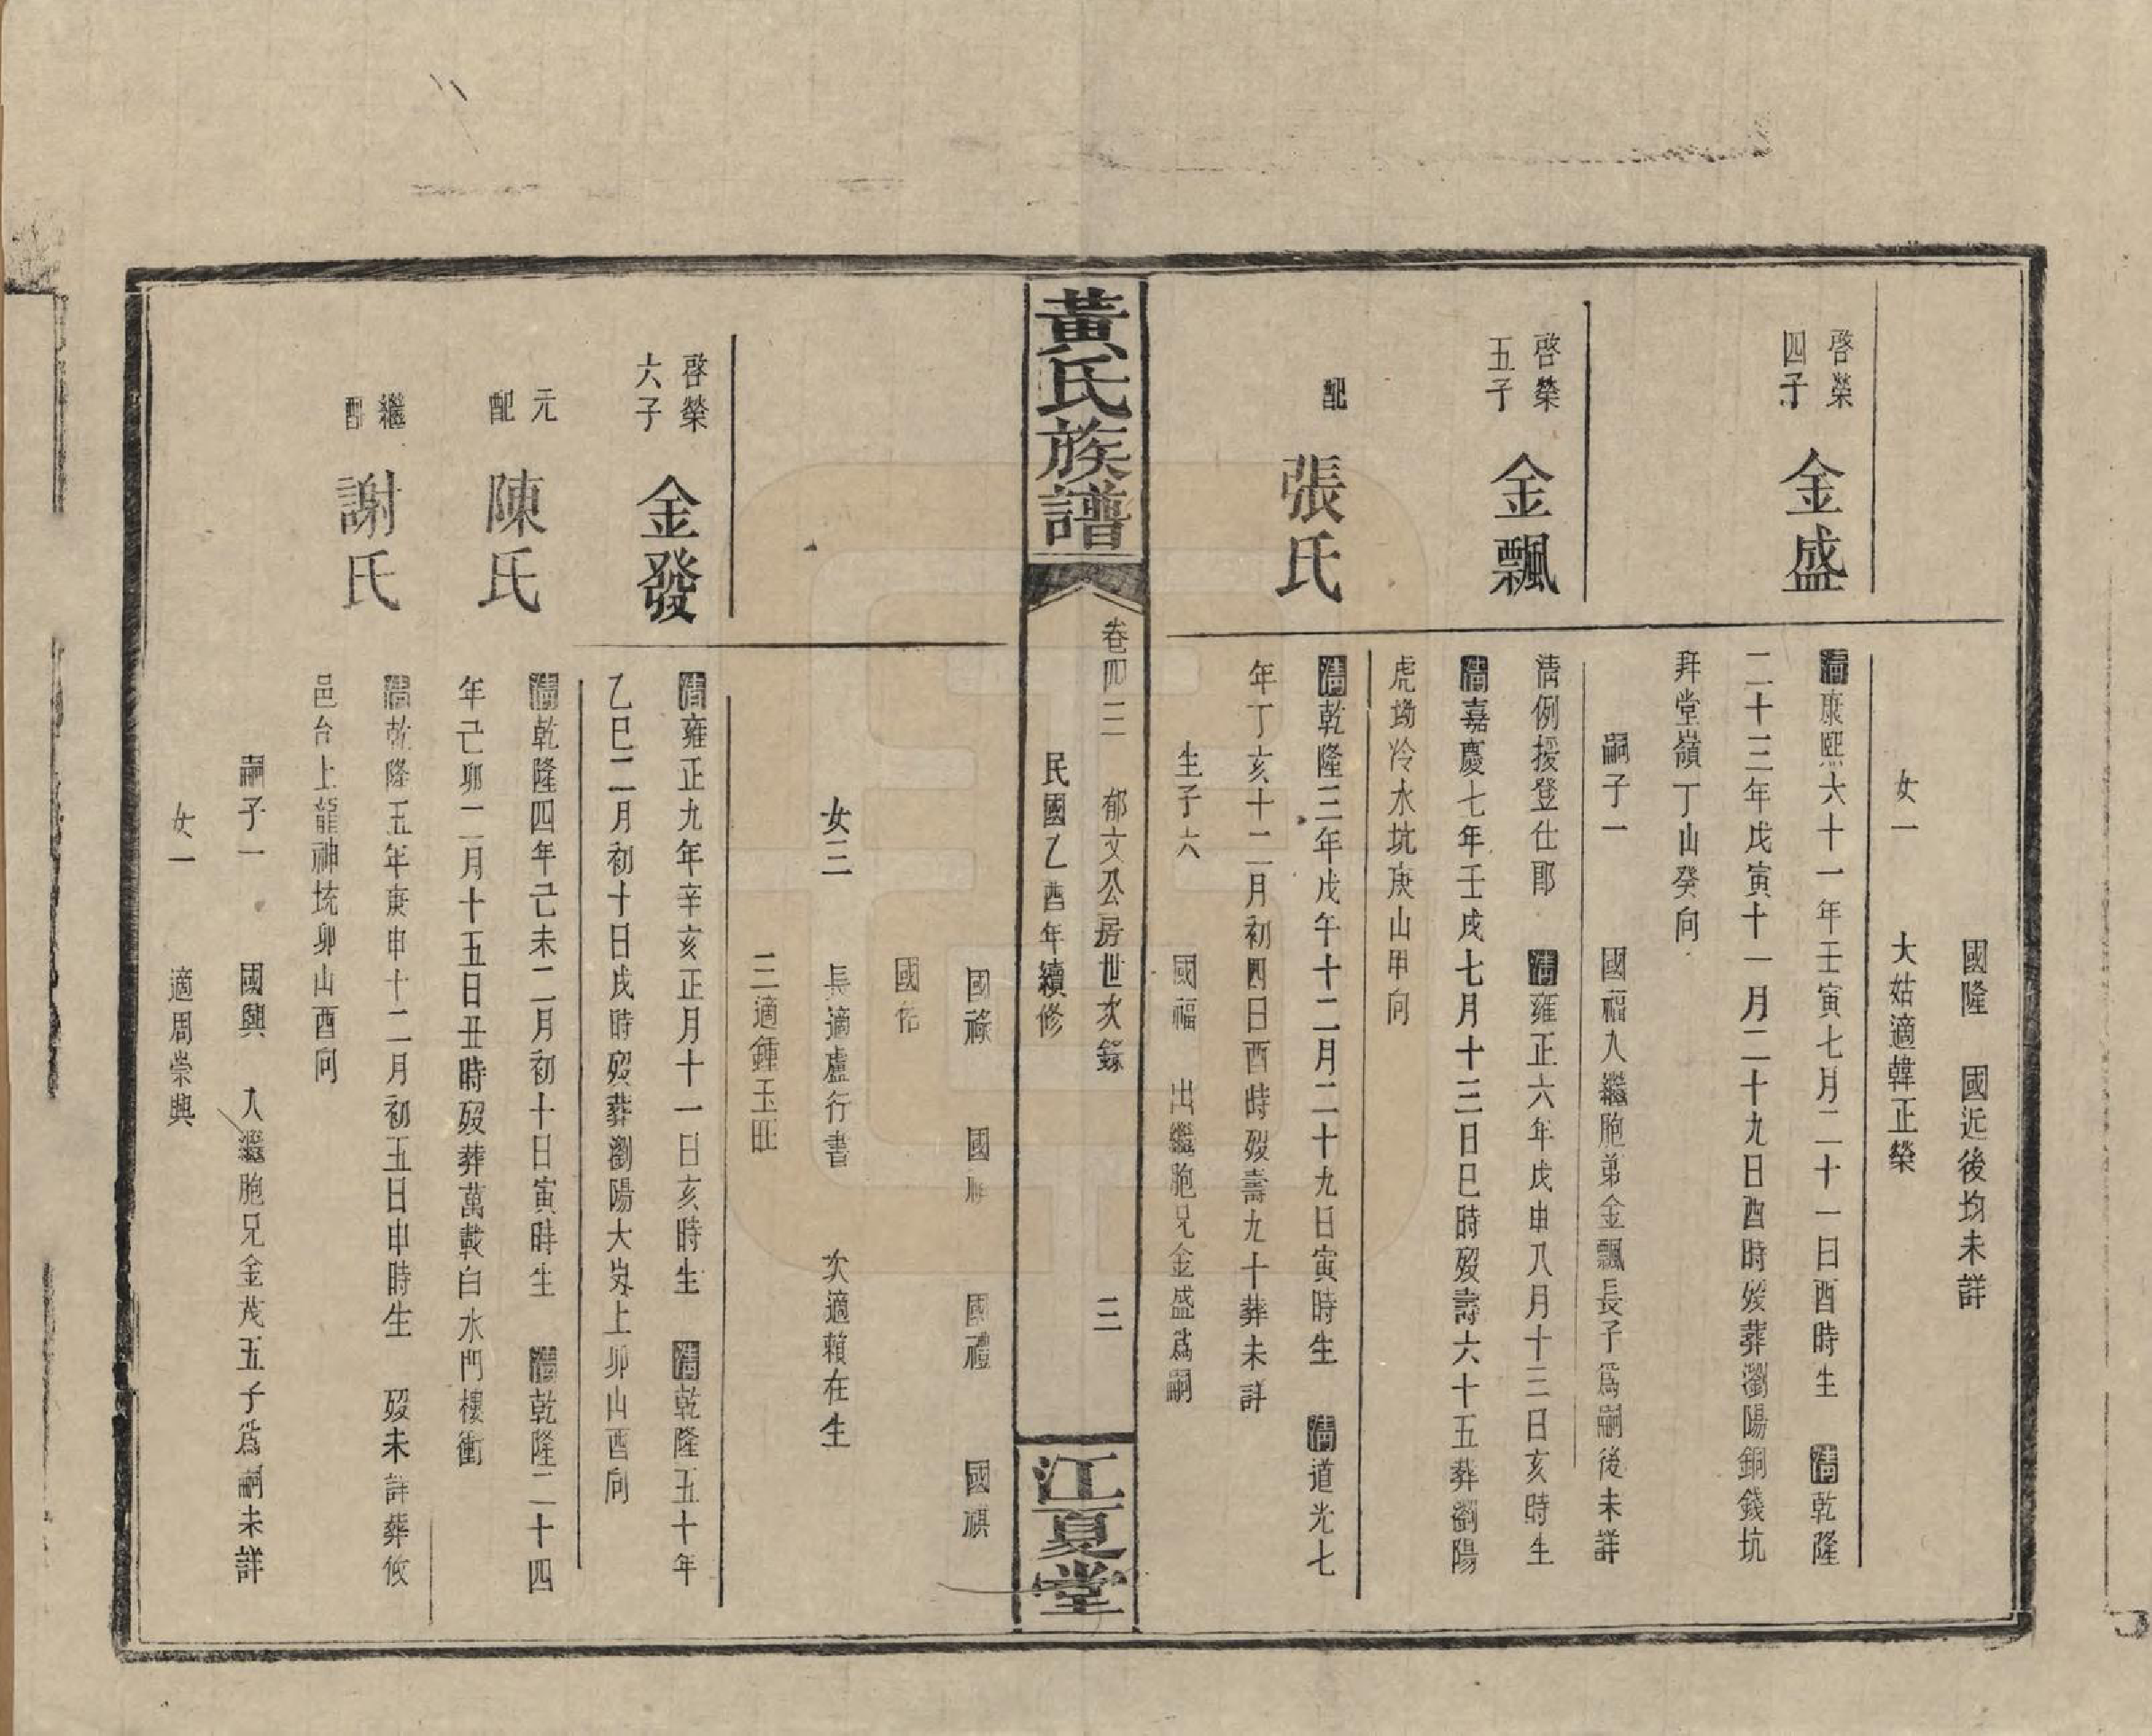 國隆　國近後均未詳
女一　大姑適韓正榮
啓榮
四子
金盛
清康熙六十一年壬寅七月二十一日酉時生　清乾隆
二十三年戊寅十一月二十九日酉時歿葬瀏陽銅錢坑
拜堂嶺丁山癸向
嗣子一　國福入繼胞弟金飄長子爲嗣後未詳
啓榮
五子
金飄
清例授登仕郎　清雍正六年戊申八月十三日亥時生
清嘉慶七年壬戌七月十三日巳時歿壽六十五葬瀏陽
虎坳冷水坑庚山甲向
配
張氏
清乾隆三年戊午十二月二十九日寅時生　清道光七
年丁亥十二月初四日酉時歿壽九十葬未詳
生子六　國福　出繼胞兄金盛爲嗣
黃氏族譜
卷四三　郁文公房世次錄　三
民國乙酉年續修
江夏堂
國祿　國　國禮　國祺
國佑
女三　長適盧行書　次適賴在生
三適鍾玉旺
啓榮
六子
金發
清雍正九年辛亥正月十一日亥時生　清乾隆五十年
乙巳二月初十日戌時歿葬瀏陽大岌上卯山酉向
元
配
陳氏
清乾隆四年己未二月初十日寅時生　清乾隆二十四
年己卯二月十五日丑時歿葬萬載白水門樓衝
繼
配
謝氏
清乾隆五年庚申十二月初五日申時生　歿未詳葬攸
邑台上龍神坑卯山酉向
嗣子一　國興　入繼胞兄金茂五子爲嗣未詳
女一　適周崇興